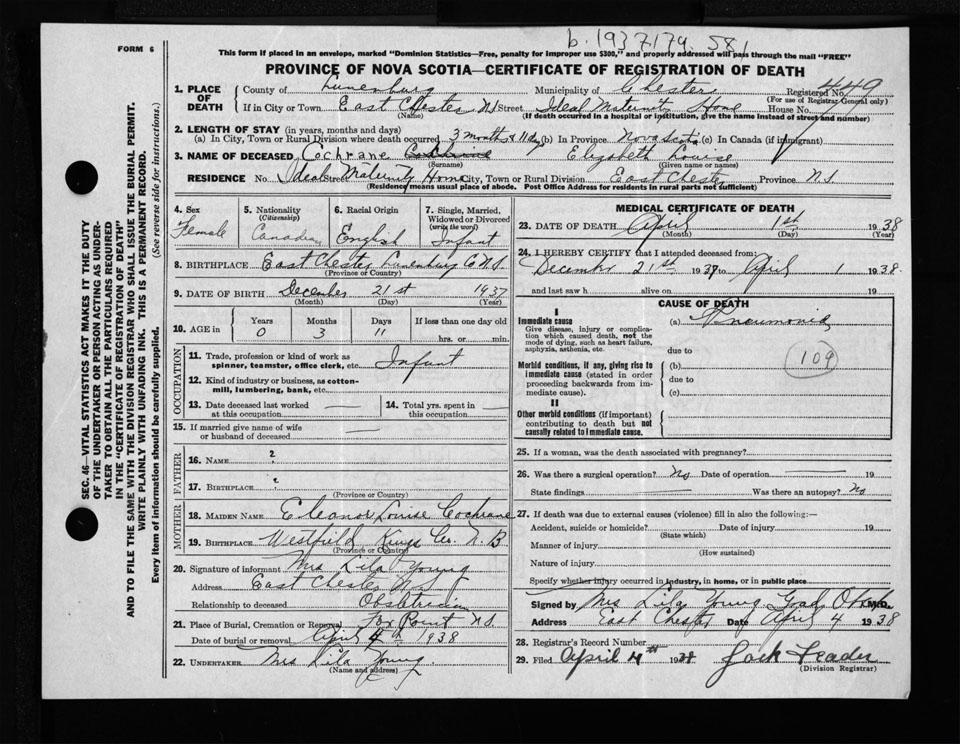 b. 1937 174 581
FORM 6
This form if placed in an envelope, marked "Dominion Statistics—Free, penalty for improper use $300," and properly addressed will pass through the mail "FREE"
PROVINCE OF NOVA SCOTIA—CERTIFICATE OF REGISTRATION OF DEATH
1. PLACE OF DEATH
County of Lunenburg Municipality of Chester Registered No. 449
(For use of Registrar-General only)
If in City or Town East Chester N.S Street Ideal Maternity Home House No.
(Name) (If death occurred in a hospital or institution, give the name instead of street and number)
2. LENGTH OF STAY (in years, months and days)
(a) In City, Town or Rural Division where death occurred 3 months & 11 ds (b) In Province Nova Scotia (c) In Canada (if immigrant)
3. NAME OF DECEASED Cochrane Elizabeth Louise
(Surname) (Given name or names)
RESIDENCE No. Ideal Street Maternity Home City, Town or Rural Division East Chester Province N.S
(Residence means usual place of abode. Post Office Address for residents in rural parts not sufficient)
4. Sex Female
5. Nationality (Citizenship) Canadian
6. Racial Origin English
7. Single, Married, Widowed or Divorced (write the word) Infant
8. BIRTHPLACE East Chester Lunenburg Co N.S.
(Province or Country)
9. DATE OF BIRTH December 21st 1937
(Month) (Day) (Year)
10. AGE in Years Months Days If less than one day old
0 3 11 hrs. or min.
OCCUPATION
11. Trade, profession or kind of work as spinner, teamster, office clerk, etc. Infant
12. Kind of industry or business, as cotton-mill, lumbering, bank, etc.
13. Date deceased last worked at this occupation — 14. Total yrs. spent in this occupation —
15. If married give name of wife or husband of deceased
FATHER
16. NAME ?
17. BIRTHPLACE ?
(Province or Country)
MOTHER
18. MAIDEN NAME Eleanor Louise Cochrane
19. BIRTHPLACE Westfield Kings Co. N.B
(Province or Country)
20. Signature of informant Mrs Lila Young
Address East Chester N.S
Relationship to deceased Obstetrician
21. Place of Burial, Cremation or Removal Fox Point N.S.
Date of burial or removal April 4th 1938
22. UNDERTAKER Mrs Lila Young
(Name and address)
MEDICAL CERTIFICATE OF DEATH
23. DATE OF DEATH April 1st 1938
(Month) (Day) (Year)
24. I HEREBY CERTIFY that I attended deceased from:
December 21st 1937 to April 1 1938.
and last saw h alive on 19
CAUSE OF DEATH
I
Immediate cause (a) Pneumonia
Give disease, injury or complication which caused death, not the mode of dying, such as heart failure, asphyxia, asthenia, etc.
due to
109
Morbid conditions, if any, giving rise to immediate cause (stated in order proceeding backwards from immediate cause).
(b)
due to
(c)
II
Other morbid conditions (if important) contributing to death but not causally related to immediate cause.
25. If a woman, was the death associated with pregnancy?
26. Was there a surgical operation? No Date of operation — 19
State findings — Was there an autopsy? No
27. If death was due to external causes (violence) fill in also the following:—
Accident, suicide or homicide? Date of injury 19
(State which)
Manner of injury
(How sustained)
Nature of injury
Specify whether injury occurred in industry, in home, or in public place
Signed by Mrs Lila Young Grad. M.D.
Address East Chester Date April 4 1938
28. Registrar's Record Number
29. Filed April 4th 1938 Jack Leader
(Division Registrar)
SEC. 46—VITAL STATISTICS ACT MAKES IT THE DUTY
OF THE UNDERTAKER OR PERSON ACTING AS UNDERTAKER
TO OBTAIN ALL THE PARTICULARS REQUIRED
IN THE "CERTIFICATE OF REGISTRATION OF DEATH"
AND TO FILE THE SAME WITH THE DIVISION REGISTRAR WHO SHALL ISSUE THE BURIAL PERMIT.
WRITE PLAINLY WITH UNFADING INK. THIS IS A PERMANENT RECORD.
Every item of information should be carefully supplied. (See reverse side for instructions.)